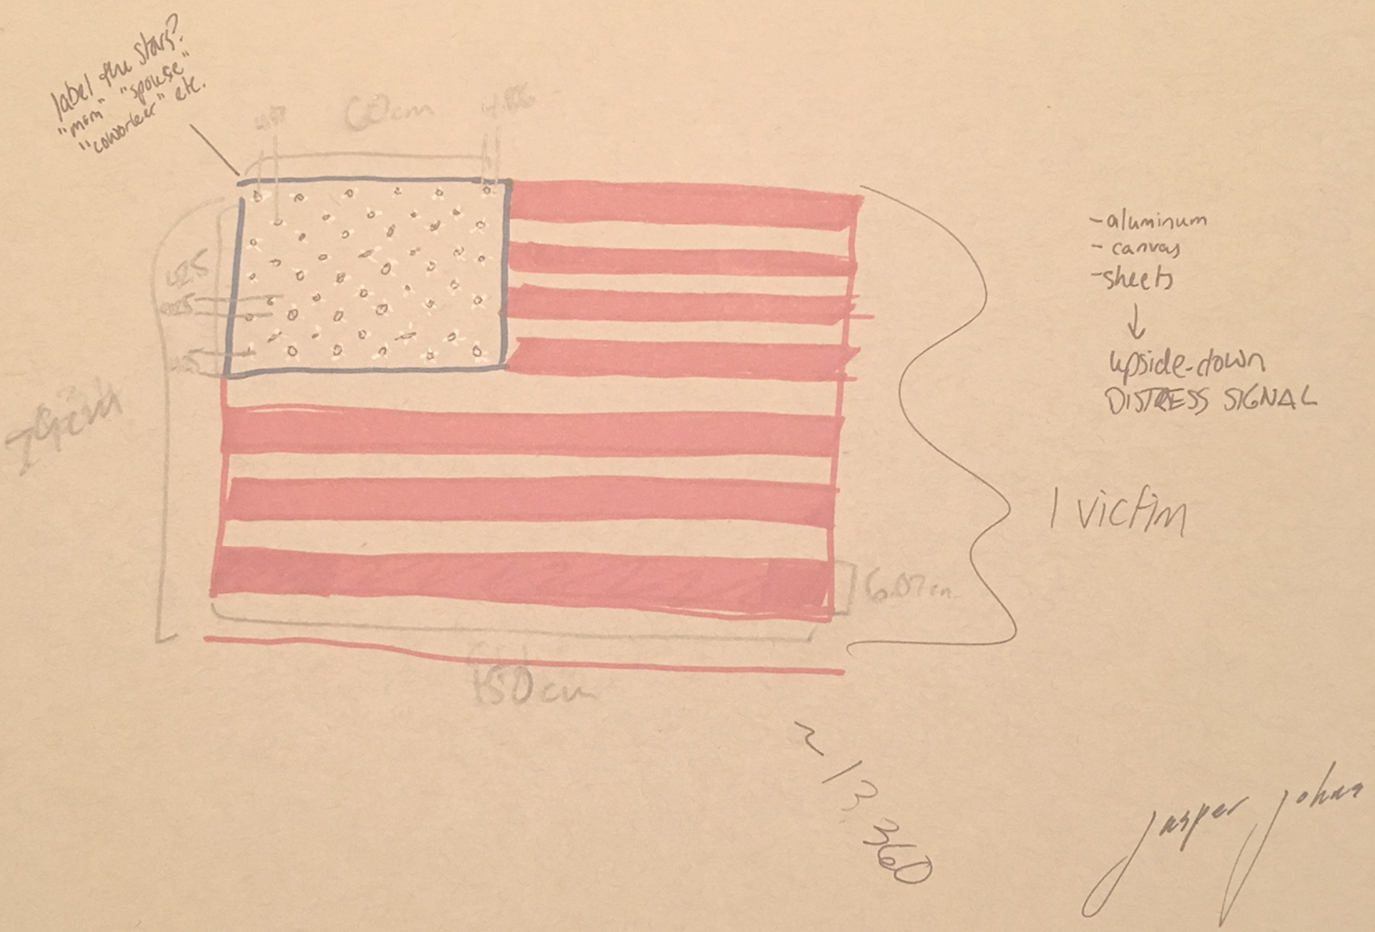 label the stars?
"mom" "spouse"
"coworker" etc.
60cm
-aluminum
- canvas
-sheets
upside-down
DISTRESS SIGNAL
1 victim
6.07cm
150cm
~ 13,360
jasper johns